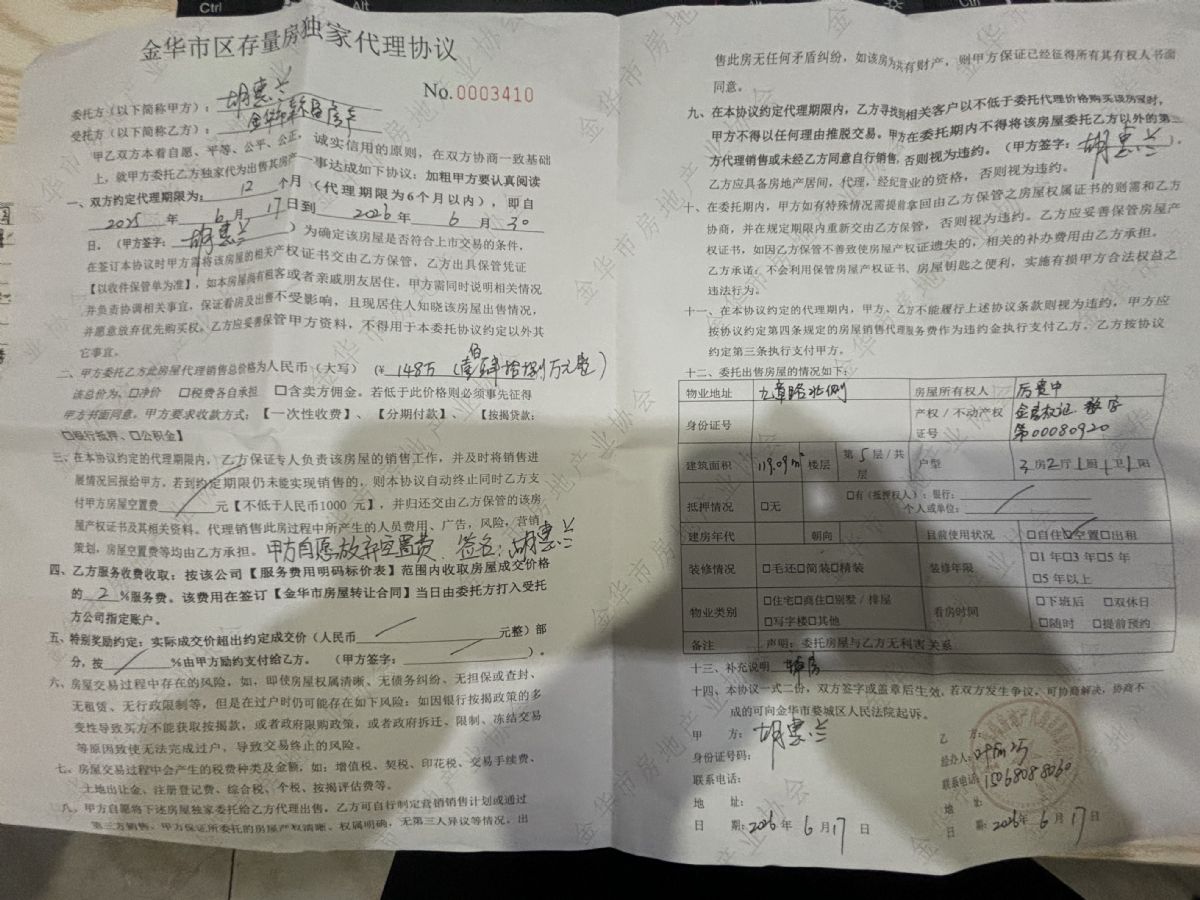 Ctrl
Alt
Ctrl
金华市区存量房独家代理协议
No.0003410
委托方（以下简称甲方）：胡惠兰
受托方（以下简称乙方）：金华
甲乙双方本着自愿、平等、公平、公正、诚实信用的原则，在双方协商一致基础
上，就甲方委托乙方独家代为出售其房产一事达成如下协议：加粗甲方要认真阅读
一、双方约定代理期限为：12个月（代理期限为6个月以内），即自
2025年6月17日到2026年6月30
日。（甲方签字：胡惠兰）为确定该房屋是否符合上市交易的条件，
在签订本协议时甲方需将该房屋的相关产权证书交由乙方保管，乙方出具保管凭证
【以收件保管单为准】，如本房屋尚有租客或者亲戚朋友居住，甲方需同时说明相关情况
并负责协调相关事宜，保证看房及出售不受影响，且现居住人知晓该房屋出售情况，
并愿意放弃优先购买权。乙方应妥善保管甲方资料，不得用于本委托协议约定以外其
它事宜。
二、甲方委托乙方此房屋代理销售总价格为人民币（大写）（￥148万
该总价为、□净价 □税费各自承担 □含卖方佣金。若低于此价格则必须事先征得
甲方书面同意。甲方要求收款方式：【一次性收费】、【分期付款】、【按揭贷款：
□银行抵押、□公积金】
三、在本协议约定的代理期限内，乙方保证专人负责该房屋的销售工作，并及时将销售进
展情况回报给甲方，若到约定期限仍未能实现销售的，则本协议自动终止同时乙方支
付甲方房屋空置费元【不低于人民币1000元】，并归还交由乙方保管的该房
屋产权证书及其相关资料。代理销售此房过程中所产生的人员费用、广告，风险，营销
策划，房屋空置费等均由乙方承担。甲方自愿放弃空置费 签名：胡惠兰
四、乙方服务收费收取：按该公司【服务费用明码标价表】范围内收取房屋成交价格
的2%服务费。该费用在签订【金华市房屋转让合同】当日由委托方打入受托
方公司指定账户。
五、特别奖励约定：实际成交价超出约定成交价（人民币元整）部
分，按%由甲方励约支付给乙方。（甲方签字：）。
六、房屋交易过程中存在的风险，如，即使房屋权属清晰、无债务纠纷、无担保或查封、
无租赁、无行政限制等，但是在过户时仍可能存在如下风险：如因银行按揭政策的多
变性导致买方不能获取按揭款，或者政府限购政策，或者政府拆迁、限制、冻结交易
等原因致使无法完成过户，导致交易终止的风险。
七、房屋交易过程中会产生的税费种类及金额，如：增值税、契税、印花税、交易手续费、
土地出让金、注册登记费、综合税、个税、按揭评估费等。
八、甲方自愿将下述房屋独家委托给乙方代理出售，乙方可自行制定营销销售计划或通过
第三方销售，甲方保证所委托的房屋产权清晰、权属明确，无第三人异议等情况，出
售此房无任何矛盾纠纷，如该房为共有财产，则甲方保证已经征得所有其有权人书面
同意。
九、在本协议约定代理期限内，乙方寻找到相关客户以不低于委托代理价格购买该房屋时，
甲方不得以任何理由推脱交易。甲方在委托期内不得将该房屋委托乙方以外的第三
方代理销售或未经乙方同意自行销售，否则视为违约。（甲方签字：胡惠兰
乙方应具备房地产居间，代理，经纪营业的资格，否则视为违约。
十、在委托期内，甲方如有特殊情况需提前拿回由乙方保管之房屋权属证书的则需和乙方
协商，并在规定期限内重新交由乙方保管，否则视为违约。乙方应妥善保管房屋产
权证书，如因乙方保管不善致使房屋产权证遗失的，相关的补办费用由乙方承担。
乙方承诺，不会利用保管房屋产权证书、房屋钥匙之便利，实施有损甲方合法权益之
违法行为。
十一、在本协议约定的代理期内，甲方、乙方不能履行上述协议条款则视为违约，甲方应
按协议约定第四条规定的房屋销售代理服务费作为违约金执行支付乙方。乙方按协议
约定第三条执行支付甲方。
十二、委托出售房屋的情况如下：
物业地址 九章路北侧 房屋所有权人 厉
身份证号 产权/不动产权证号 金房权证 字第00080920
建筑面积 119.09m² 楼层 第5层/共层 户型 3房2厅1厨1卫1阳
抵押情况 □无 □有（抵押权人）：银行：
个人或单位：
建房年代 朝向 目前使用状况 □自住□空置□出租
装修情况 □毛还□简装□精装 装修年限 □1年□3年□5年
□5年以上
物业类别 □住宅□商住□别墅/排屋 看房时间 □下班后 □双休日
□写字楼□其他 □随时 □提前预约
备注 声明：委托房屋与乙方无利害关系
十三、补充说明
十四、本协议一式二份，双方签字或盖章后生效。若双方发生争议，可协商解决，协商不
成的可向金华市婺城区人民法院起诉。
甲 方：胡惠兰
乙 方：
身份证号码：
经办人：
联系电话：
联系电话：15068088060
地 址：
地 址：
日 期：2026年6月17日
日 期：2026年6月17日